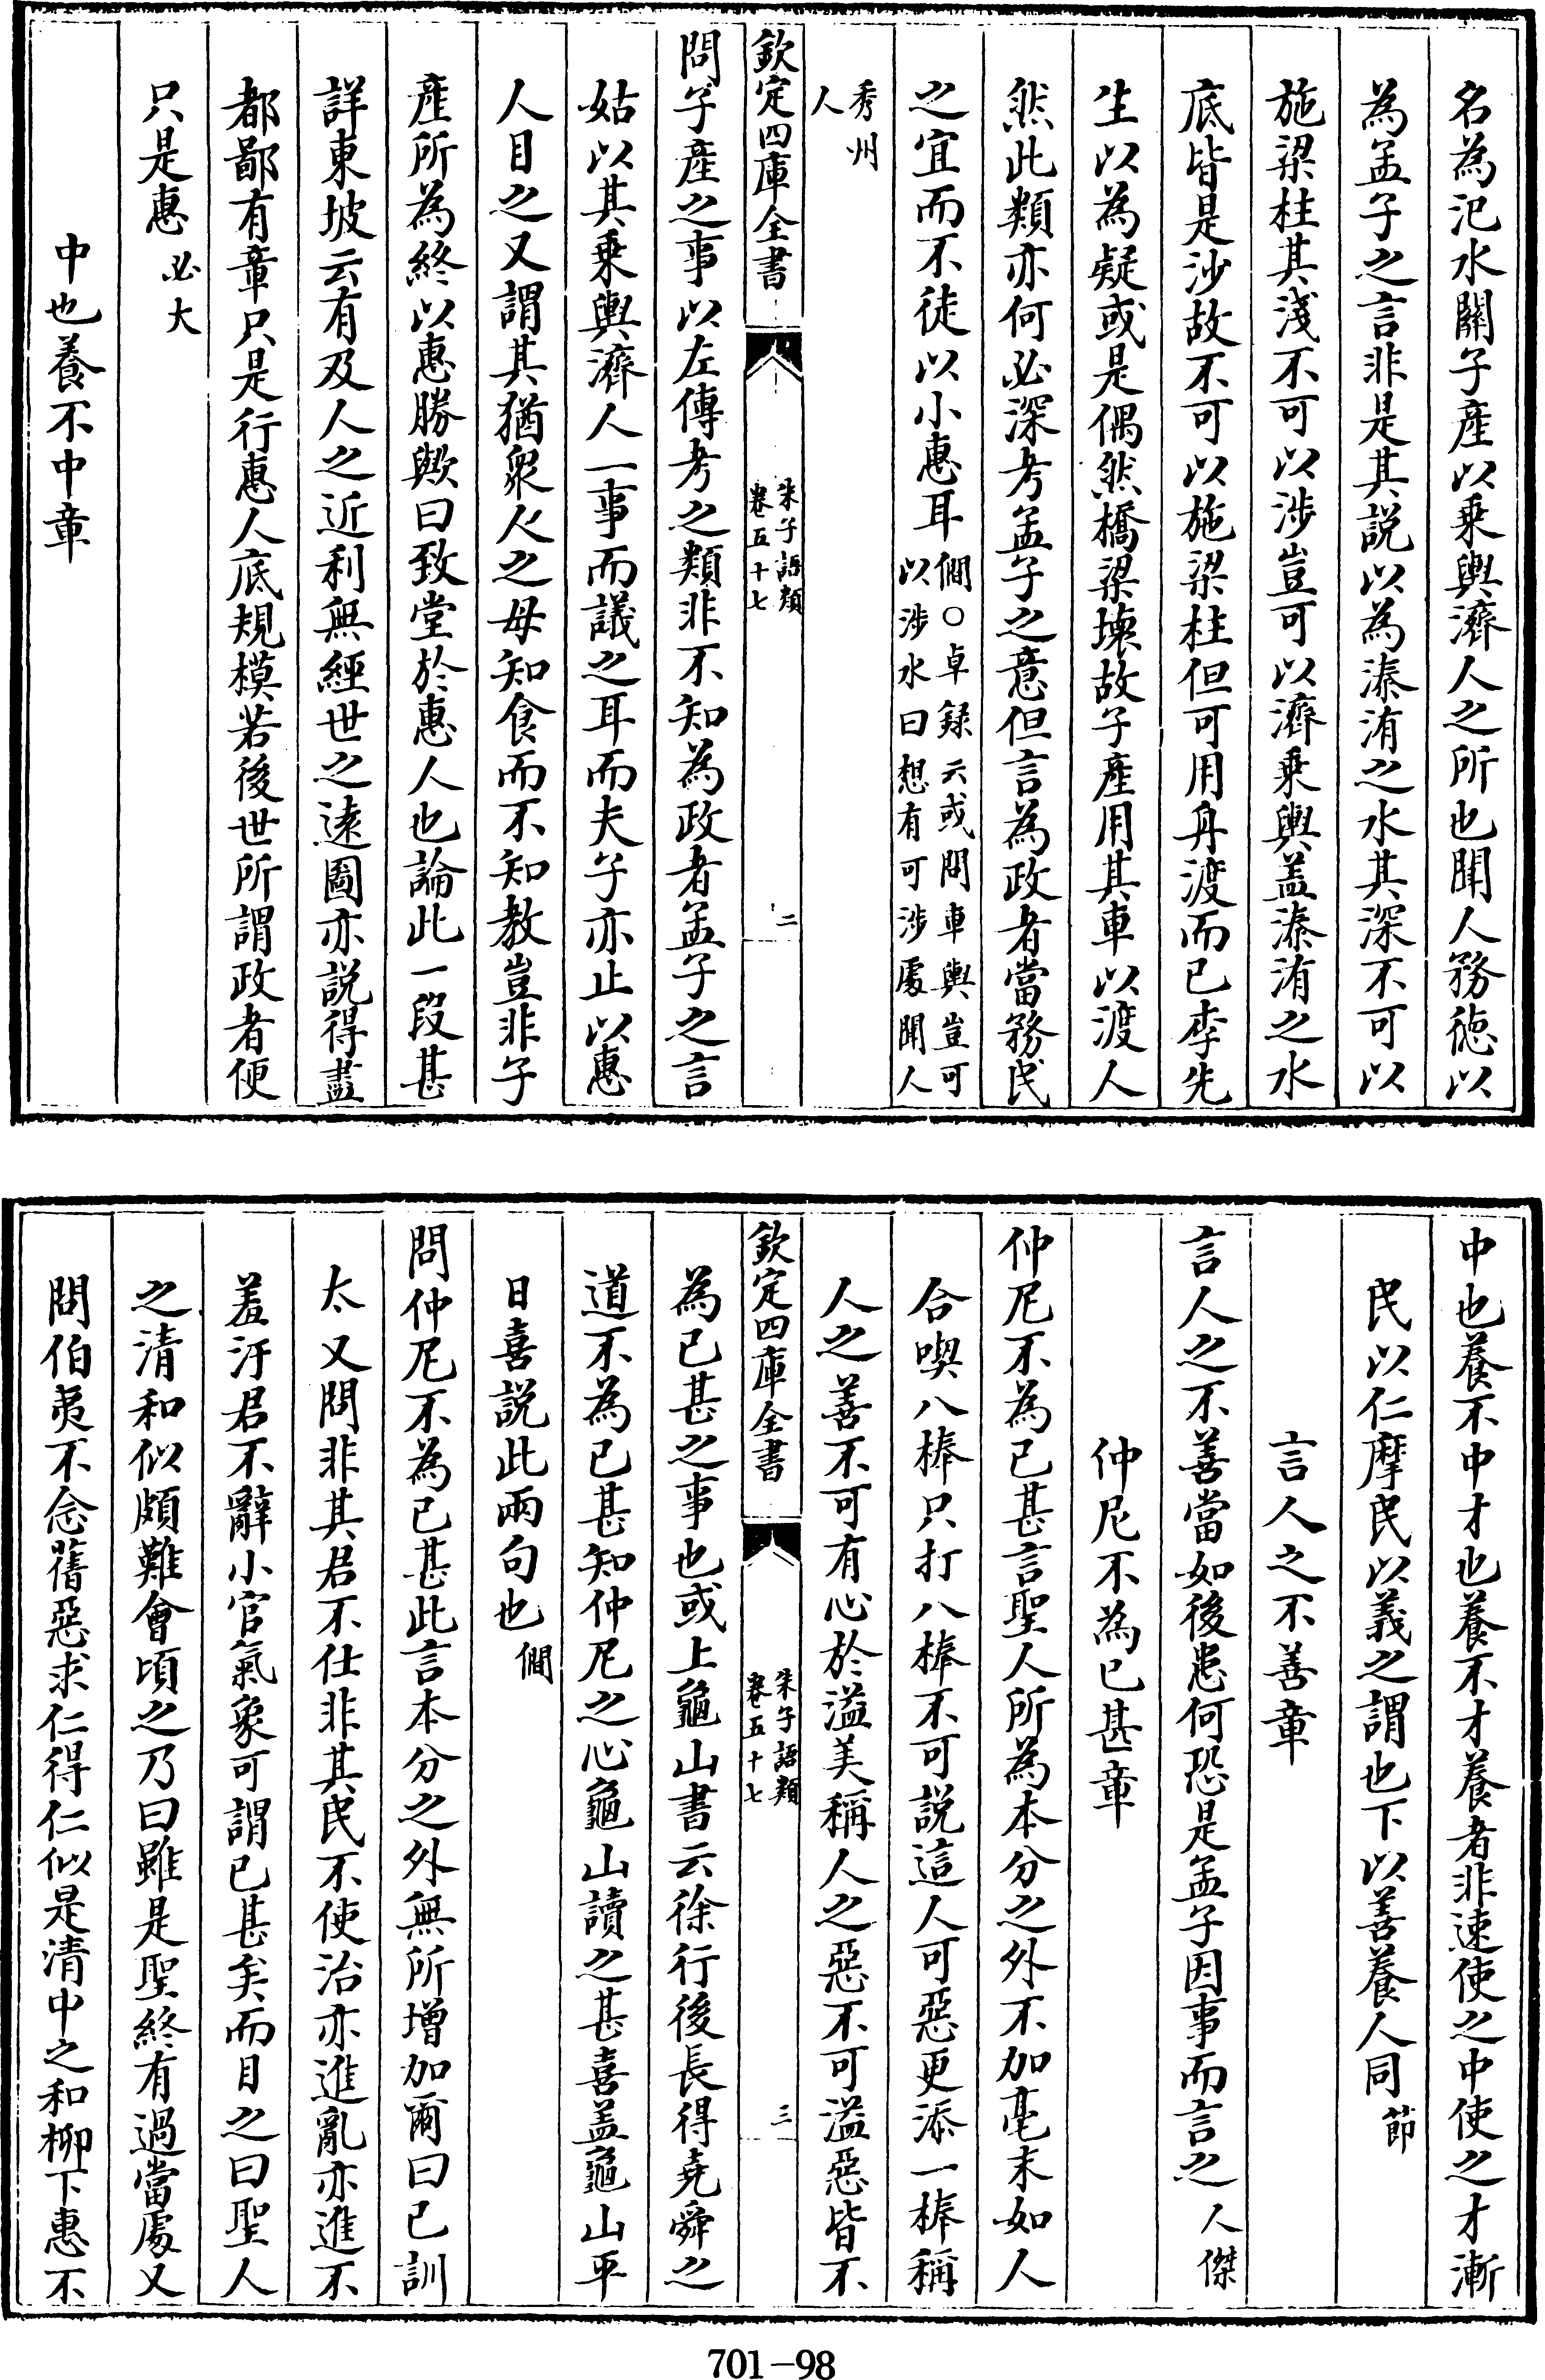 名為汜水關子產以乗輿濟人之所也聞人務徳以
為孟子之言非是其説以為溱洧之水其深不可以
施梁柱其淺不可以涉豈可以濟乗輿盖溱洧之水
底皆是沙故不可以施梁柱但可用舟渡而已李先
生以為疑或是偶然橋梁壊故子產用其車以渡人
然此類亦何必深考孟子之意但言為政者當務民
之宜而不徒以小惠耳
僩○卓録云或問車輿豈可
以涉水曰想有可涉處聞人
秀州
人
欽定四庫全書
朱子語類
卷五十七
二
問子產之事以左傳考之類非不知為政者孟子之言
姑以其乗輿濟人一事而議之耳而夫子亦止以惠
人目之又謂其猶衆人之母知食而不知教豈非子
產所為終以惠勝歟曰致堂於惠人也論此一段甚
詳東坡云有及人之近利無經世之遠圖亦説得盡
都鄙有章只是行惠人底規模若後世所謂政者便
只是惠
必大
中也養不中章
中也養不中才也養不才養者非速使之中使之才漸
民以仁摩民以義之謂也下以善養人同
節
言人之不善章
言人之不善當如後患何恐是孟子因事而言之
人傑
仲尼不為已甚章
仲尼不為已甚言聖人所為本分之外不加毫末如人
合喫八棒只打八棒不可説這人可惡更添一棒稱
人之善不可有心於溢美稱人之惡不可溢惡皆不
欽定四庫全書
朱子語類
卷五十七
三
為已甚之事也或上龜山書云徐行後長得堯舜之
道不為已甚知仲尼之心龜山讀之甚喜盖龜山平
日喜説此兩句也
僩
問仲尼不為已甚此言本分之外無所增加爾曰已訓
太又問非其君不仕非其民不使治亦進亂亦進不
羞汙君不辭小官氣象可謂已甚矣而目之曰聖人
之清和似頗難會頃之乃曰雖是聖終有過當處又
問伯夷不念舊惡求仁得仁似是清中之和栁下惠不
701-98